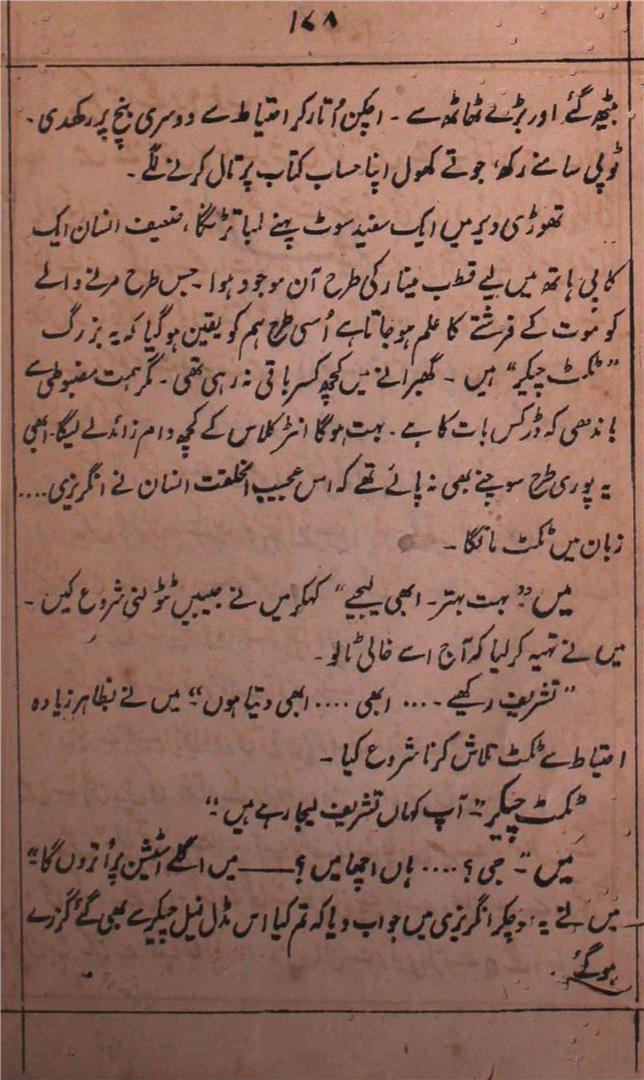 ۱۴۸
بیٹھ گئے اور بڑے ٹھاٹھ سے ۔ اچکن اُتار کر احتیاط سے دوسری بنچ پر رکھدی ۔
ٹوپی سامنے رکھ، جوتے کھول اپنا حساب کتاب پرتال کرنے لگے ۔
تھوڑی دیر میں ایک سفید سوٹ پہنے لمبا تڑنگا، ضعیف انسان ایک
کاپی ہاتھ میں لیے قطب مینار کی طرح آن موجود ہوا ۔ جس طرح مرنے والے
کو موت کے فرشتے کا علم ہو جاتا ہے اُسی طرح ہم کو یقین ہو گیا کہ یہ بزرگ
”ٹکٹ چیکر“ ہیں ۔ گھبرانے میں کچھ کسر باقی نہ رہی تھی ۔ مگر ہمت مضبوطی سے
باندھی کہ ڈر کس بات کا ہے ۔ بہت ہو گا انٹر کلاس کے کچھ دام زائد لے لیگا۔ ابھی
یہ پوری طرح سوچنے بھی نہ پائے تھے کہ اس عجیب الخلقت انسان نے انگریزی ....
زبان میں ٹکٹ مانگا ۔
میں :” بہت بہتر ۔ ابھی لیجیے“ کہکر میں نے جیبیں ٹٹولنی شروع کیں ۔
میں نے تہیہ کر لیا کہ آج اسے خالی ٹالو ۔
”تشریف رکھیے ۔ ... ابھی .... ابھی دیتا ہوں“ میں نے بظاہر زیادہ
احتیاط سے ٹکٹ تلاش کرنا شروع کیا ۔
ٹکٹ چیکر ”۔ آپ کہاں تشریف لیجا رہے ہیں ۔“
میں ”۔ جی ؟ .... ہاں اچھا میں ؟ —— میں اگلے اسٹیشن پر اُتروں گا“
میں نے یہ سوچکر انگریزی میں جواب دیا کہ تم کیا اس مڈل فیل چیکر سے بھی گئے گزرے
ہو گئے ۔